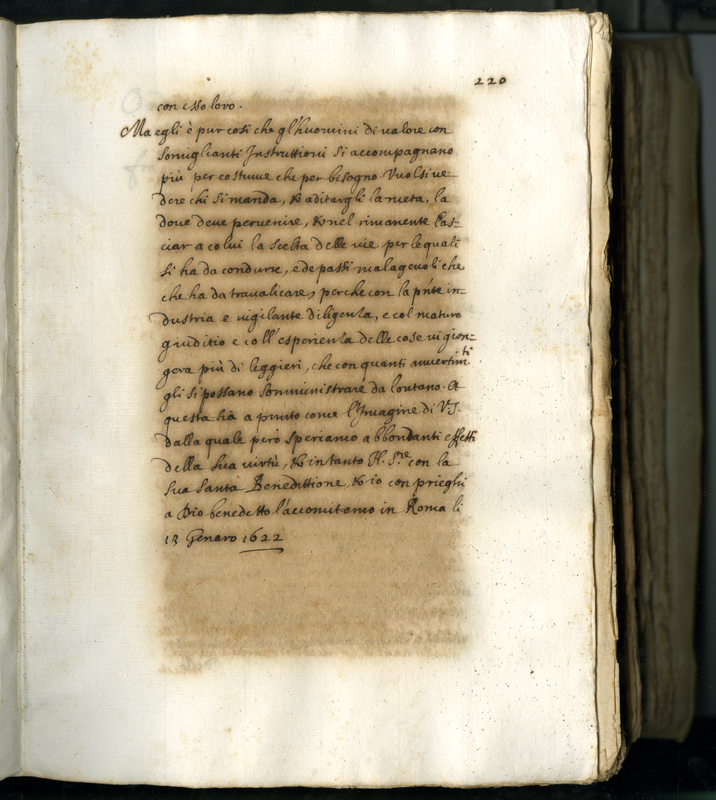 220
con esso loro.
Ma egli è pur cosi che gl'huomini di valore con
somiglianti Instruttioni si accompagnano
più per costume che per bisogno. Vuolsi ve
dere chi si manda, & aditargli la meta, la
doue deue peruenire, & nel rimanente las-
ciar a colui la scelta delle vie per le quali
si ha da condurre, e de passi malageuoli che
che ha da trauallicare, perche con la pñte in-
dustria e vigilante diligenza, e col maturo
giuditio e coll'esperienza delle cose vi gion-
gera più di leggieri, che con quanti auuertim.ti
gli si possano somministrare da lontano. Et
questa hà a punto come l'Imagine di V.S.
dalla quale però speriamo abbondanti effetti
della sua virtù, & intanto N. S.re con la
sua santa Benedittione, & io con prieghi
a Dio benedetto l'accomitemo in Roma li
13 Genaro 1622